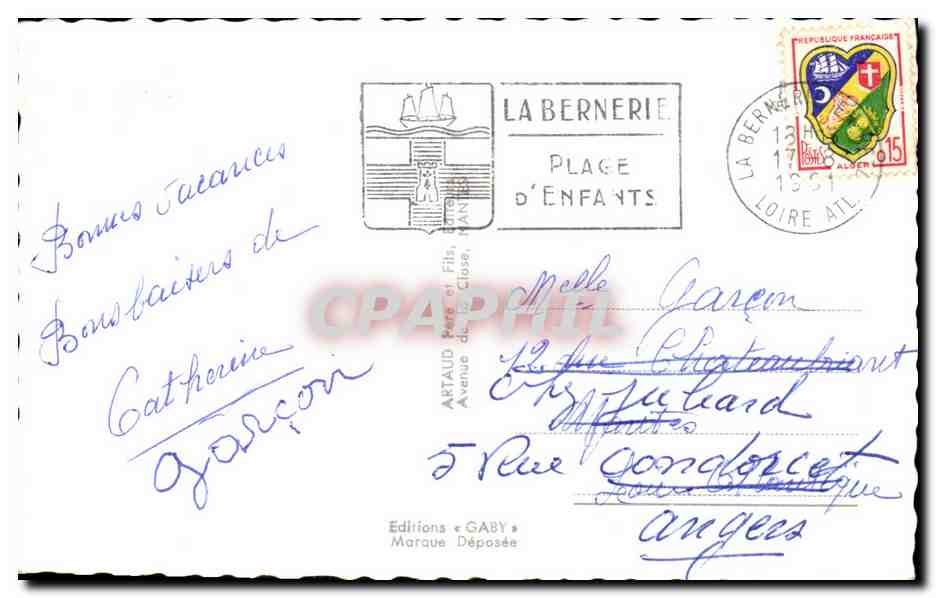 Bonnes vacances
Bons baisers de
Catherine
Garçon
LA BERNERIE
PLAGE
D'ENFANTS
REPUBLIQUE FRANÇAISE
POSTES
ALGER
0,15
LA BERNERIE
13H
17-8
1961
LOIRE ATL.
ARTAUD Père et Fils, Editeurs
Avenue de la Close, NANTES
CPAPHIL
Melle Garçon
12 rue Chateaubriant
chez Juhard
Nantes
5 Rue Condorcet
Loire Atlantique
Angers
Editions « GABY »
Marque Déposée